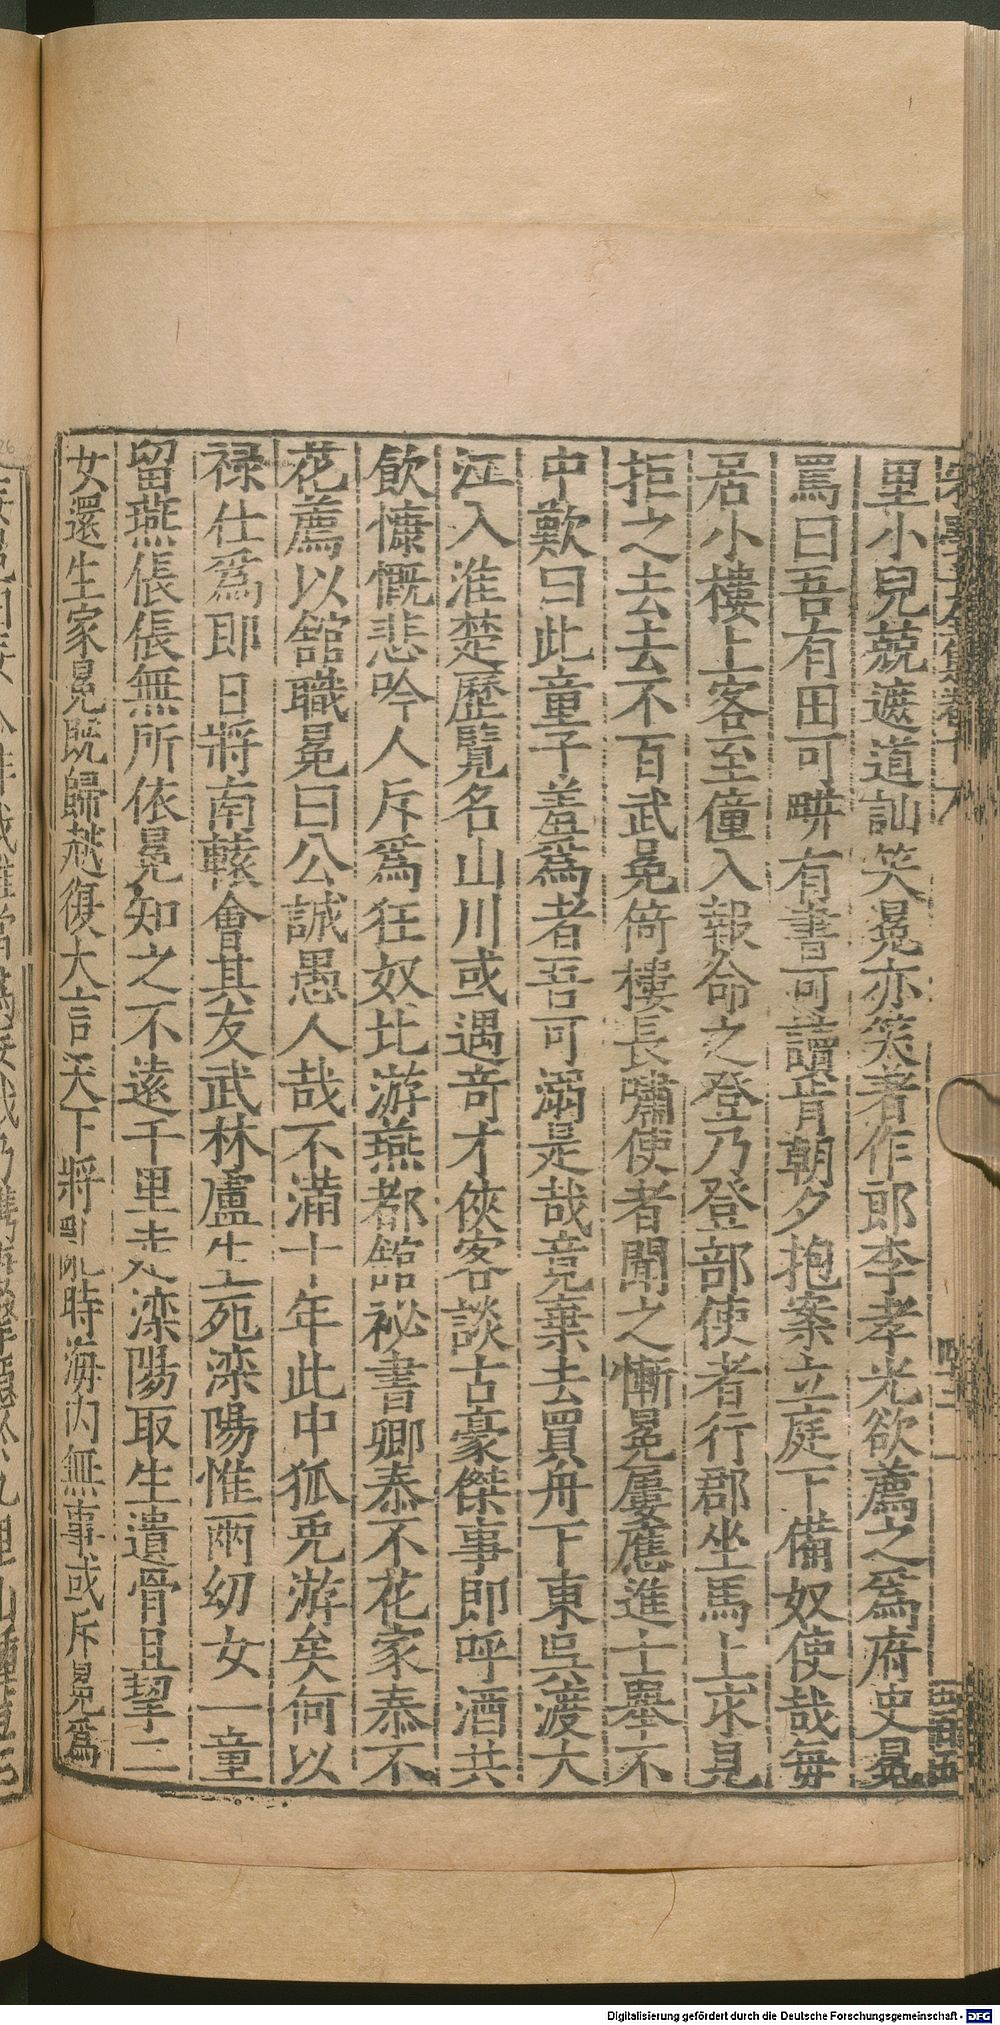 里小兒競遮道訕笑冕亦笑著作郎李孝光欲薦之爲府史冕
罵曰吾有田可畊有書可讀肯朝夕抱案立庭下備奴使哉每
居小樓上客至僮入報命之登乃登部使者行郡坐馬上求見
拒之去去不百武冕倚樓長嘯使者聞之慚冕屢應進士舉不
中歎曰此童子羞爲者吾可溺是哉竟棄去買舟下東吳渡大
江入淮楚歷覽名山川或遇竒才俠客談古豪傑事即呼酒共
飲慷慨悲吟人斥爲狂奴北游燕都館祕書卿泰不花家泰不
花薦以館職冕曰公誠愚人哉不滿十年此中狐兎游矣何以
禄仕爲即日將南轅會其友武林盧生死灤陽惟兩幼女一童
留燕倀倀無所依冕知之不遠千里走灤陽取生遺骨且挈二
女還生家冕既歸越復大言天下將亂時海内無事或斥冕爲
Digitalisierung gefördert durch die Deutsche Forschungsgemeinschaft - DFG